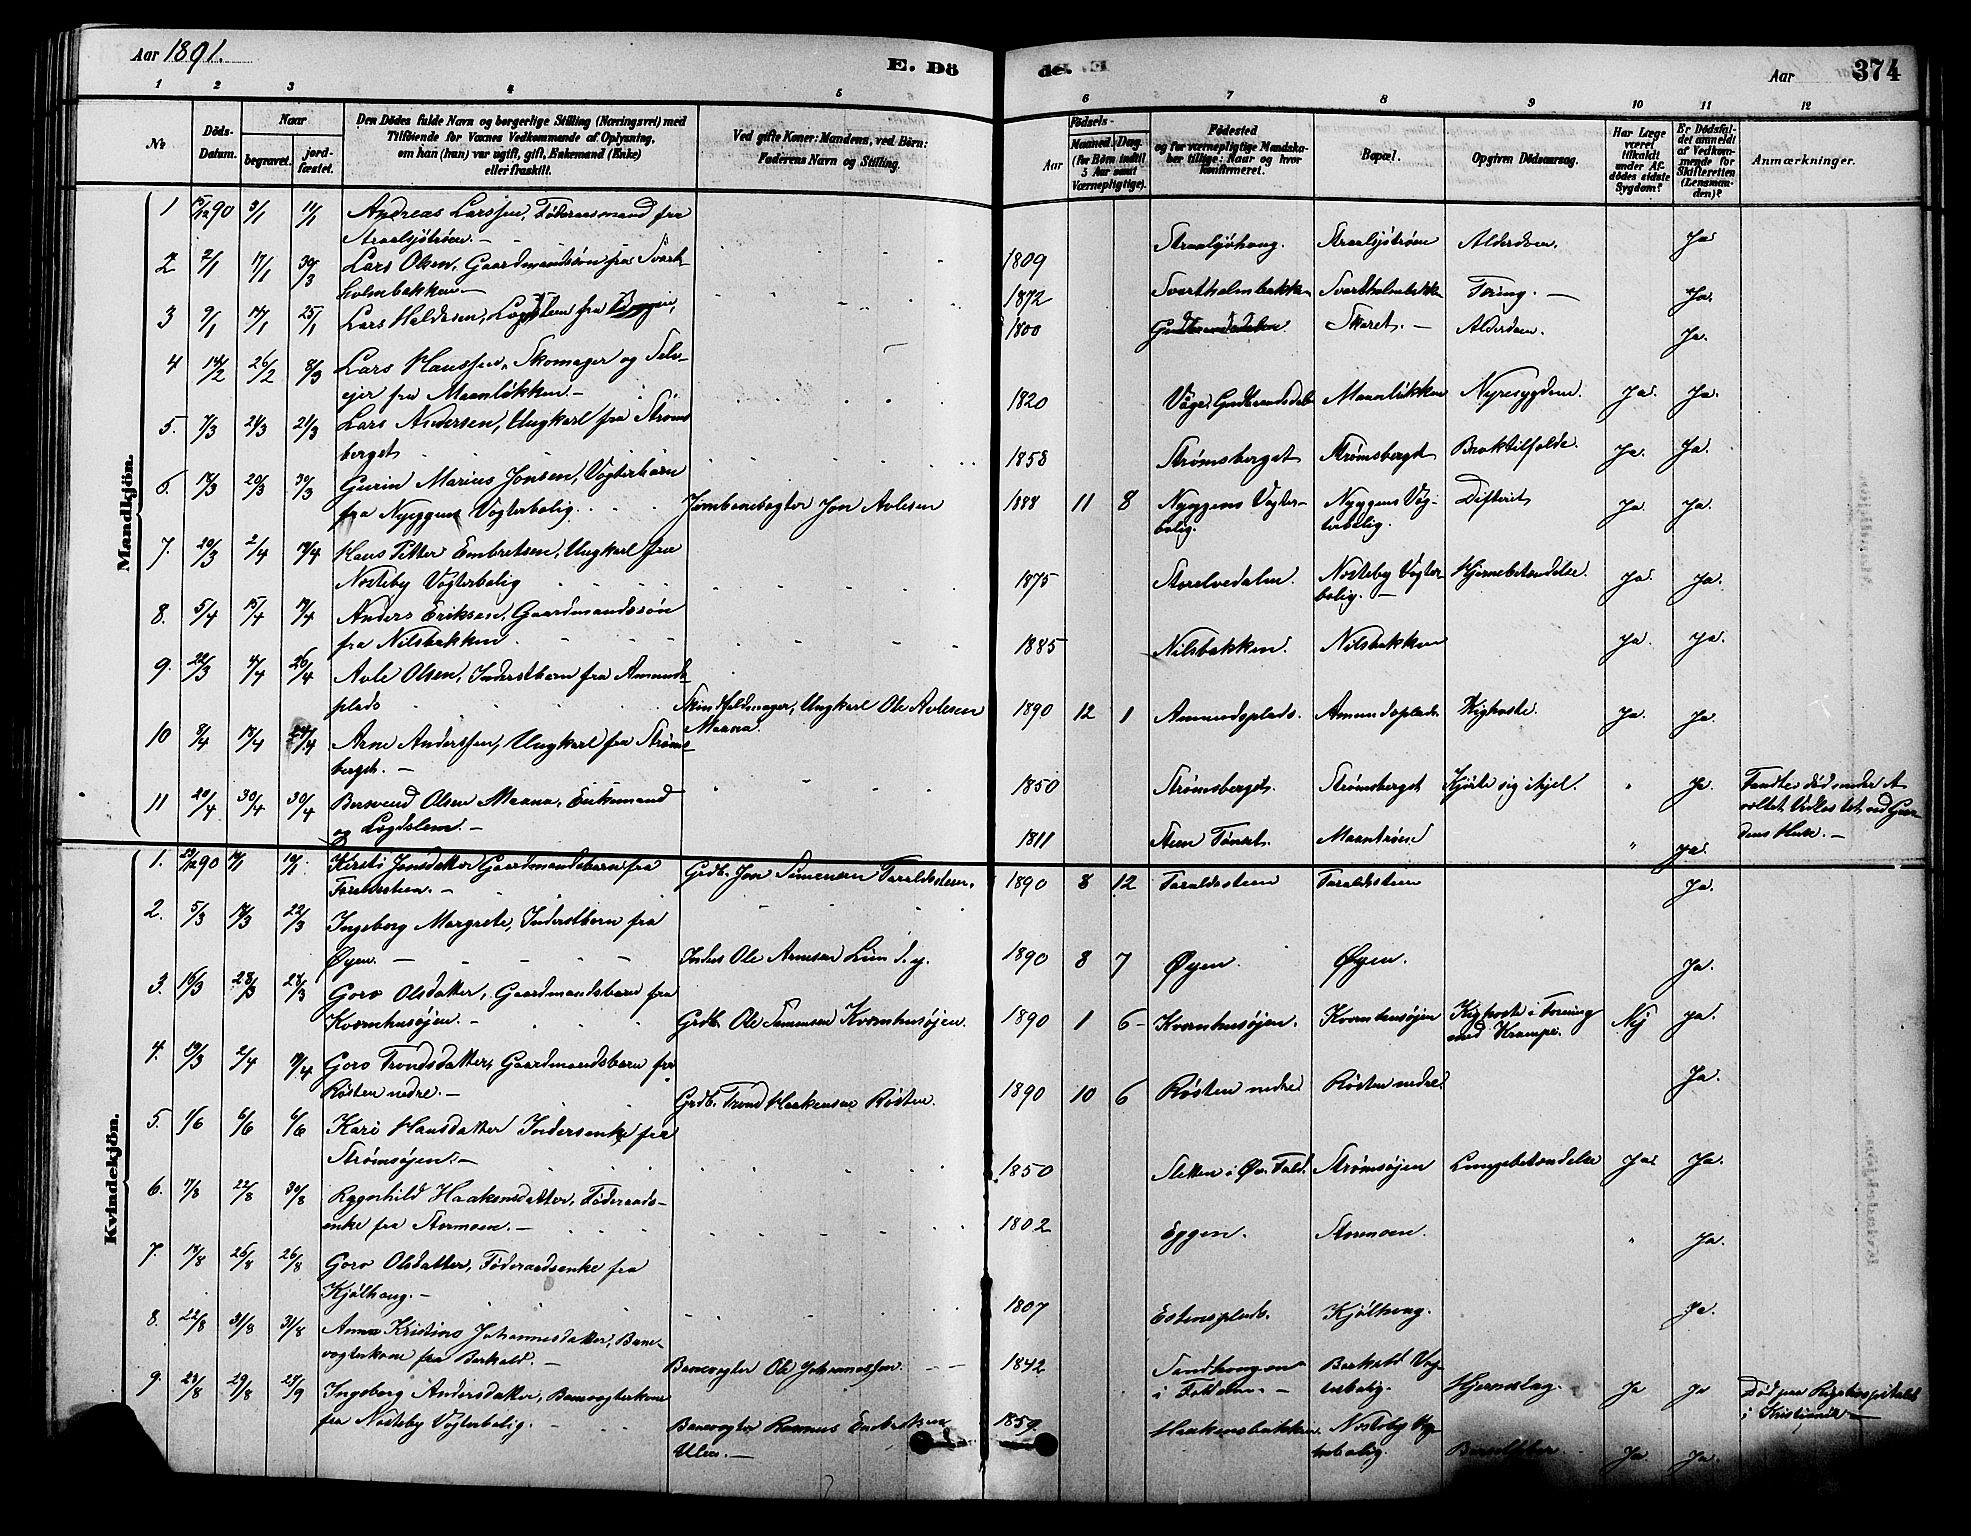 Aar 1891.
E. Dö
de.
Aar
374
1 2 3 4 5 6 7 8 9 10 11 12
No
Döds-
Datum.
Naar
begravet.
jord-
fæstet.
Den Dödes fulde Navn og borgerlige Stilling (Næringsvei) med
Tilföiende for Voxnes Vedkommende af Oplysning,
om han (hun) var ugift, gift, Enkemand (Enke)
eller fraskilt.
Ved gifte Koner: Mandens, ved Börn:
Faderens Navn og Stilling.
Födsels-
Aar
Maaned. Dag.
(for Börn indtil
3 Aar samt
Værnepligtige).
Födested
og for værnepligtige Mandska-
ber tillige: Naar og hvor
konfirmeret.
Bopæl.
Opgiven Dödsaarsag.
Har Læge
været
tilkaldt
under Af-
dödes sidste
Sygdom?
Er Dödsfal-
det anmeldt
af Vedkom-
mende for
Skifteretten
(Lensman-
den)?
Anmærkninger.
Mandkjön.
1 90 3/1 11/1 Andreas Larssen, Föderaadsmand fra
Straalsjötröen. - 1809 Straalsjöhaug. Straalsjötröen Alderdom. Ja
2 2/1 17/1 30/3 Lars Olsen, Gaardmandssön fra Svart-
holmbakken - 1872 Svartholmbakken Svartholmbakken Tæring. - Ja.
3 9/1 14/1 25/1 Lars Haldosen, Lægdslem fra 1800 Gudbrandsdalen Skaret. - Alderdom. Ja.
4 14/2 26/2 8/3 Lars Hanssen, Skomager og Selv-
ejer fra Maanlökken - 1820 Vaage, Gudbrandsdalen Maanlökken Nyresygdom. Ja. Ja.
5. 7/3 21/3 21/3 Lars Andersen, Ungkarl fra Ströms-
berget 1858 Strömsberget Strömsberget Broktilfælde. Ja. Ja.
6. 14/3 20/3 30/3 Marius Jonsen, Vogterbarn
fra Nyeggens Vogterbolig. Jernbanevogter Jon Avlesen 1888 11 8 Nyeggens Vogter-
bolig. Nyeggens Vog-
terbolig. Difterit Ja Ja.
7. 20/3 2/4 19/4 Hans Petter Embretsen, Ungkarl fra
Nordeby Vogterbolig 1875 Storelvedalen. Nordeby Vogter-
bolig. - Hjernebetændelse. Ja. Ja.
8. 5/4 15/4 19/4 Anders Eriksen, Gaardmandssön
fra Nilsbakken. 1885 Nilsbakken. Nilsbakken Ja. Ja.
9. 22/3 4/4 26/4 Avle Olsen, Inderstbarn fra Amunds-
plads Skindfeldmager, Ungkarl Ole Avlesen
Maana. 1890 12 1 Amundsplads. Amundsplads. Kighoste. Ja. Ja.
10 8/4 18/4 Arne Anderssen, Ungkarl fra Ströms-
berget. - 1850 Strömsberget. Strömsberget Kjörte sig ihjel. " Ja. Fandtes död under et
væltet Vedlæs tet ved Gaar-
dens Huse. -
11 20/4 30/4 30/4 Bersvend Olsen Maana, Enkemand
og Lægdslem. - 1811 Steen Tönset. Maantröen " Ja.
Kvindekjön.
1. 90 10/1 Kirsti Jonsdatter Gaardmandsbarn fra
Taraldsteen. - Grdb. Jon Simensen Taraldsteen. 1890 8 12 Taraldsteen Taraldsteen Ja.
2. 5/3 14/3 22/3 Ingeborg Margrete, Inderstbarn fra
Öyen. - Inders Ole Arnesen 1890 8 7 Öyen. Öyen. Ja.
3. 16/3 28/3 28/3 Goro Olsdatter, Gaardmandsbarn fra
Kvernhusöjen. - Grdb. Ole Simensen Kvernhusöjen. 1890 1 6 - Kvernhusöjen. Kvernhusöjen Kighoste i Forening
med Krampe. Nej Ja.
4. 19/3 2/4 19/4 Goro Trondsdatter, Gaardmandsbarn fra
Rösten nedre. - Grdb. Trond Haakensen Rösten. 1890 10 6 Rösten nedre Rösten nedre Ja.
5. 1/6 6/6 6/6 Kari Hansdatter Indersenke fra
Strömsöjen. - 1850 Sletten i Öv. Fold. Strömsöjen Lungebetændelse Ja. Ja.
6. 17/8 22/8 30/8 Ragnhild Haakensdatter, Föderaads-
enke fra Stormoen. - 1802 Eggen. Stormoen. " Ja.
7. 17/8 26/8 26/8 Goro Olsdatter, Föderaadsenke fra
Kjölhaug. - 1807 Estensplads. Kjölhaug. Ja.
8. 22/8 31/8 31/8 Anna Kristine Johannesdatter, Bane-
vogterkone fra Barkald. - Banevogter Ole Johannessen. 1842 Sandhaugen
i Folldalen. - Barkald Vog-
terbolig. Hjerneslag. Ja Ja Död paa Rigshospitalet
i Kristiania -
9. 23/8 29/8 27/9 Ingeborg Andersdatter, Banevogterkone
fra Nordeby Vogterbolig. Banevogter Rasmus Embretsen
Ulen. - 1859. Haakensbakken Nordeby Vog-
terbolig. Barselfeber Ja Ja.